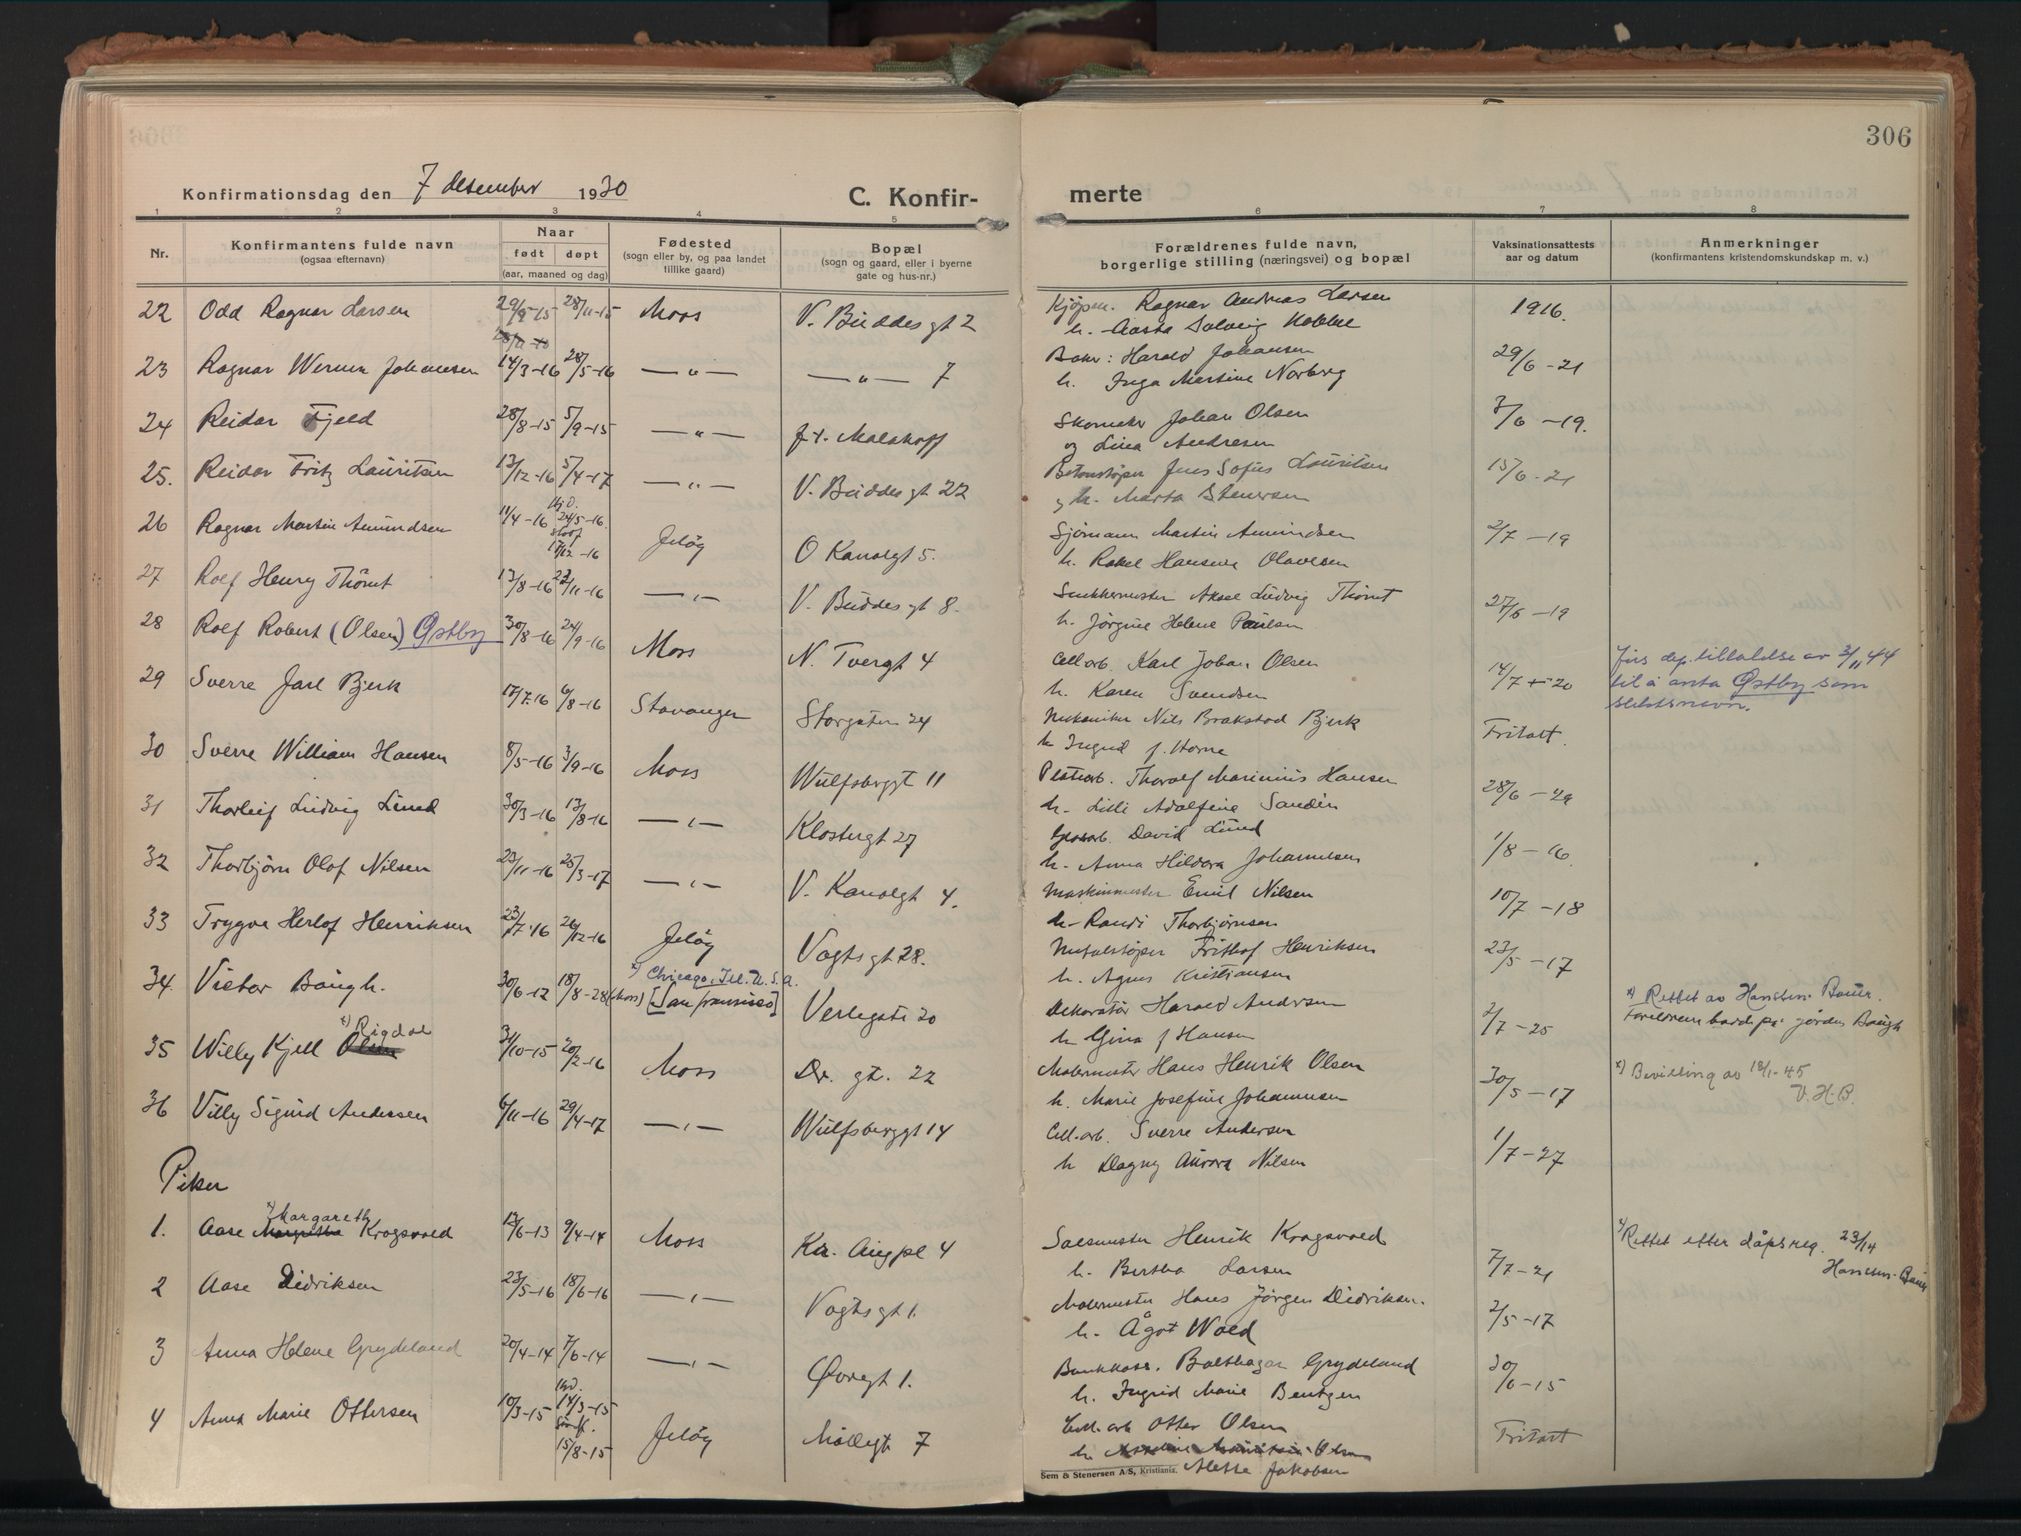 306
Konfirmationsdag den 7 desember 1930
C. Konfir-
merte
1 2 3 4 5 6 7 8
Nr.
Konfirmantens fulde navn
(ogsaa efternavn)
Naar
født døpt
(aar, maaned og dag)
Fødested
(sogn eller by, og paa landet
tillike gaard)
Bopæl
(sogn og gaard, eller i byerne
gate og hus-nr.)
Forældrenes fulde navn,
borgerlige stilling (næringsvei) og bopæl
Vaksinationsattests
aar og datum
Anmerkninger
(konfirmantens kristendomskundskap m. v.)
22 Odd Ragnar Larsen 29/9-15 28/11-15 Moss V. Buddes gt 2 Kjøpm. Ragnar Andreas Larsen 1916.
h. Aasta Solveig
23 Ragnar Werner Johansen 14/3-16 28/5-16 — " — — " — 7 Harald Johansen 29/6-21
h. Inga Martine Norberg
24 Reidar Fjeld 28/8-15 5/9-15 — " — Malakoff Johan Olsen 3/6-19.
og Lina Andresen
25. Reidar Fritz Lauritsen 13/12-16 5/4-17 — " — V. Buddes gt 22 Betonstøper Jens Sofus Lauritsen 15/6-21
h. Marta Stenersen
26 Ragnar Martin Amundsen 11/4-16 24/5-16. 17/12-16 Jeløy O Kanalgt 5. Sjømann Martin Amundsen 2/7-19
h. Rakel Hansine Olavesen
27 Rolf Henry Thömt 13/8-16 /11-16 — " — V. Buddes gt 8. Snekkermester Aksel Ludvig Thömt 27/6-19
h. Jørgine Helene Paulsen
28 Rolf Robert (Olsen) Østby 30/8-16 24/9-16 Moss N. Tvergt 4 Cell.arb. Karl Johan Olsen 14/7-20
h. Karen Svendsen
Jus. dep. tillatelse av 3/11 44
til å anta Østby som
slektsnavn.
29 Sverre Jarl Bjerk 17/7-16 6/8-16 Stavanger Storgaten 24 Mekaniker Nils Brakstad Bjerk Fritatt.
h Ingrid f. Horne
30 Sverre William Hansen 8/5-16 3/9-16 Moss Wulfsbergt 11 Thoralf Marinius Hansen 28/6-29
h. Lilli Adolfine Sandén
31 Thorleif Ludvig Lund 30/3-16 13/8-16 — " — Klostergt 27 Glasarb. David Lund 1/8-16.
h. Anna Hildora Johannesen
32 Thorbjørn Olaf Nilsen 23/11-16 25/3-17 — " — V. Kanalgt 4. Maskinmester Emil Nilsen 10/7-18
h. Randi Thorbjørnsen
33 Trygve Herlof Henriksen 23/7-16 26/12-16 Jeløy Vogtsgt 28. Metalstøper Frithof Henriksen 23/5-17
h. Agnes Kristiansen
34. Victor Baugh. 30/6-12 18/8-28 (Moss) x) Chicago, Ill. U.S.A.
[San fransisco] Verlegate 20 Dekoratør Harald Andersen 2/7-25
h Gina f Hansen
x) Rettet av Hansteen-Bauer.
Foreldrene Baugh
35 Willy Kjell Olsen x) Rigdal 31/10-15 20/2-16 Moss Dr. gt. 22 Malermester Hans Henrik Olsen 30/5-17
h. Marie Josefine Johannesen
x) Bevilling av 18/1-45
V.H.B.
36 Villy Sigurd Andersen 6/11-16 29/4-17 — " — Wulfsberggt 14 Cell.arb. Sverre Andersen 1/7-27
h Dagny Aurora Nilsen
Piker
1. Aase x) Margareth Krogsvold 12/6-13 9/4-14 Moss Kr. Augpl 4 Henrik Krogsvold 7/7-21
h. Bertha Larsen
x) Rettet efter dåpsreg. 23/14
Hansteen-Bauer
2 Aase Didriksen 23/5-16 18/6-16 — " — Vogtsgt 1. Malermester Hans Jørgen Didriksen. 2/5-17
h. Ågot Wold
3 Anna Helene Grydeland 20/4-14 7/6-14 — " — Øvregt 1. Bankkass. Balthazar Grydeland 30/6-15
h. Ingrid Marie Bentzen
4 Anna Marie Ottersen 10/3-15 14/3-15 15/8-15 Jeløy Møllegt 7 Cell.arb Otter Olsen Fritatt
h. Olsen
Alette Jakobsen
Sem & Stenersen A/S, Kristiania.